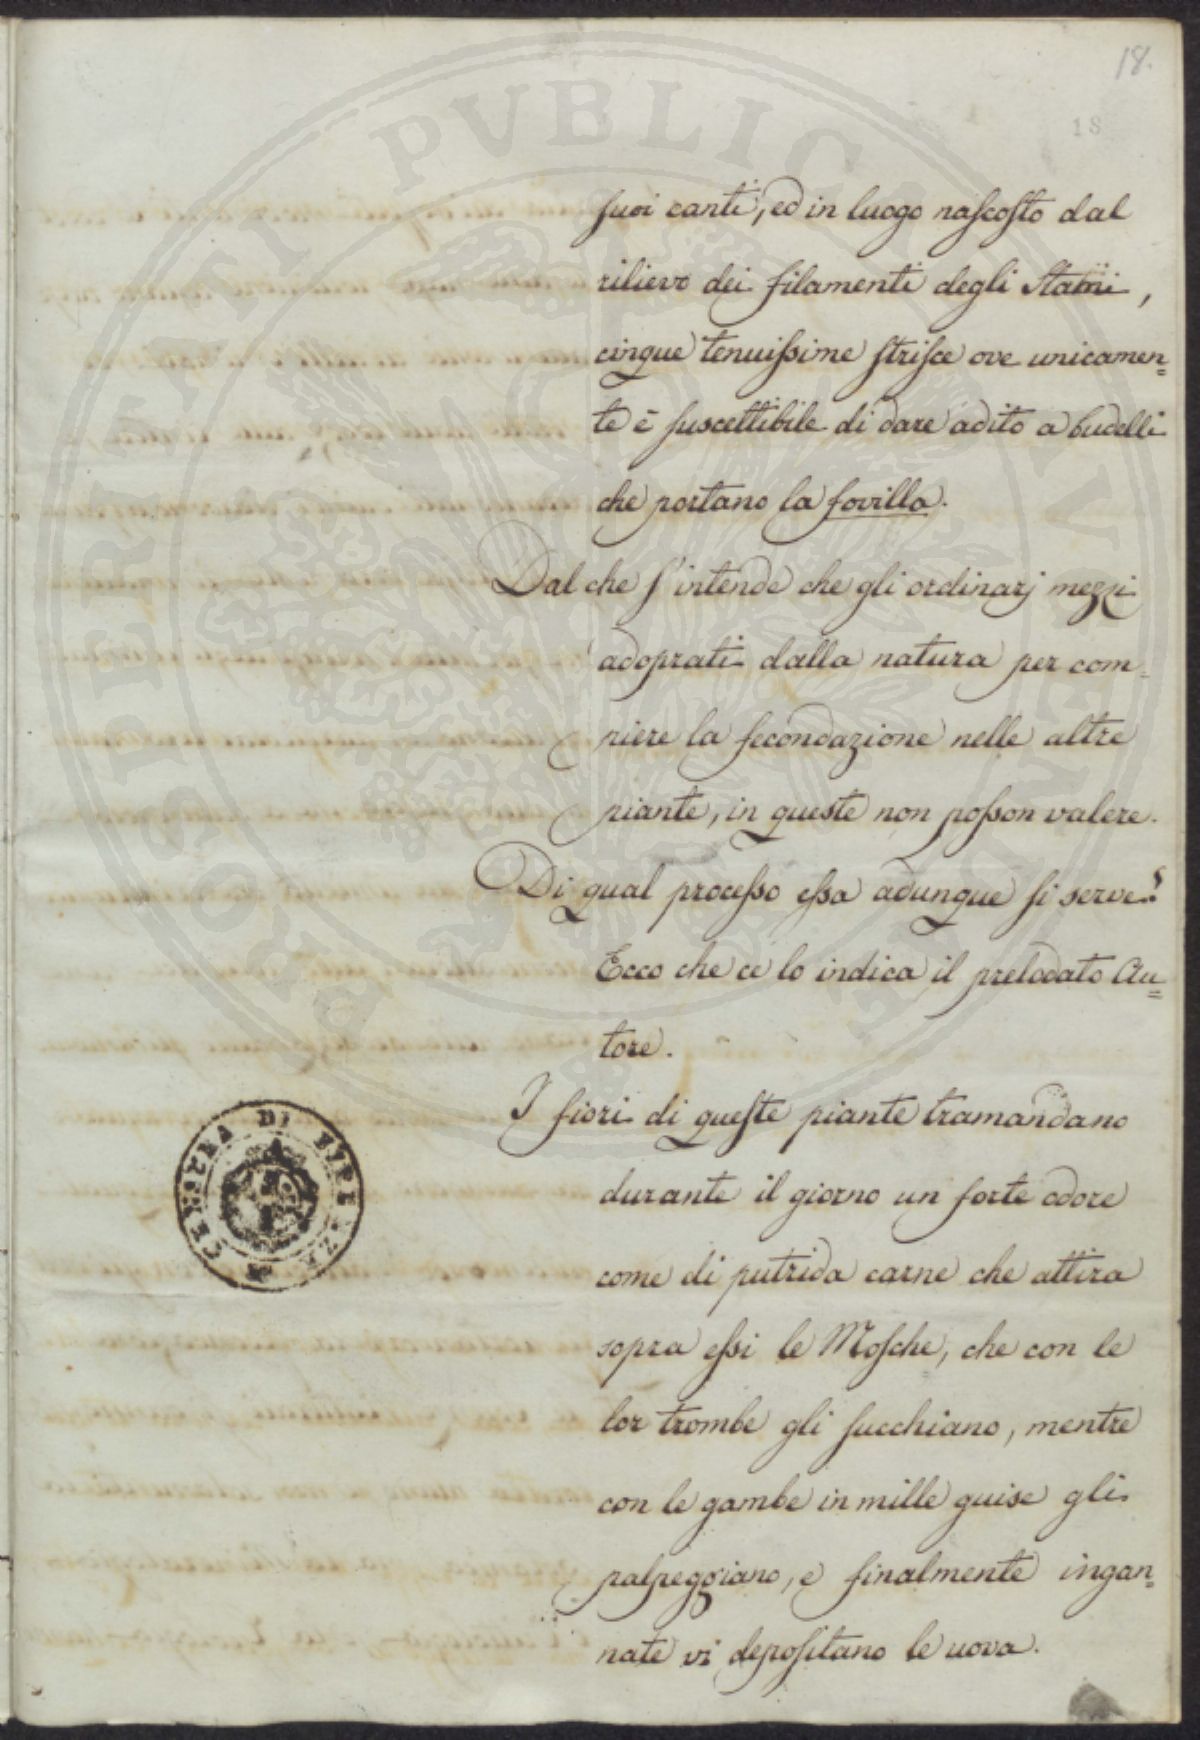 18.
18
suoi canti, ed in luogo nascosto dal
rilievo dei filamenti degli Stami,
cinque tenuissime strisce ove unicamen=
te è suscettibile di dare adito a budelli
che portano la fovilla.
Dal che s'intende che gli ordinarj mezzi
adoprati dalla natura per com-
piere la fecondazione nelle altre
piante, in queste non posson valere.
Di qual processo essa adunque si serve?
Ecco che ce lo indica il prelodato Au=
tore.
I fiori di queste piante tramandano
durante il giorno un forte odore
come di putrida carne che attira
sopra essi le Mosche, che con le
lor trombe gli succhiano, mentre
con le gambe in mille guise gli
palpeggiano, e finalmente ingan=
nate vi depositano le uova.